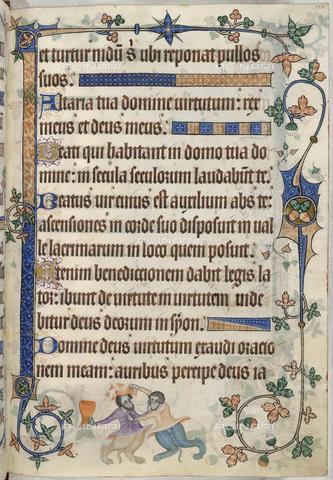 et turtur nidū s̄ ubi reponat pullos
suos.
Altaria tua domine uirtutum: rex
meus et deus meus.
Beati qui habitant in domo tua do
mine: in secula seculorum laudabūt te.
Beatus uir cuius est auxilium abs te:
ascensiones in corde suo disposuit in ual
le lacrimarum in loco quem posuit.
Etenim benedictionem dabit legis la
tor: ibunt de uirtute in uirtutem uide
bitur deus deorum in syon.
Domine deus uirtutum exaudi oracio
nem meam: auribus percipe deus ia
ALINARI